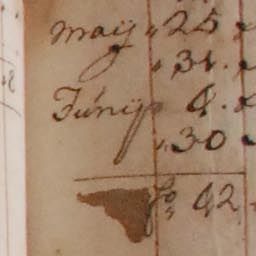 may 25
31.
Junij 4.
30
fo 42